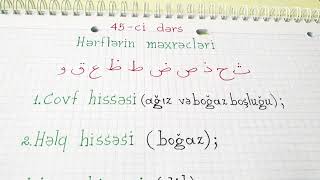 45-ci dərs
Hərflərin məxrəcləri
ث ح ذ ص ض ط ظ ع ق و
1. Covf hissəsi (ağız və boğaz boşluğu);
2. Həlq hissəsi (boğaz);